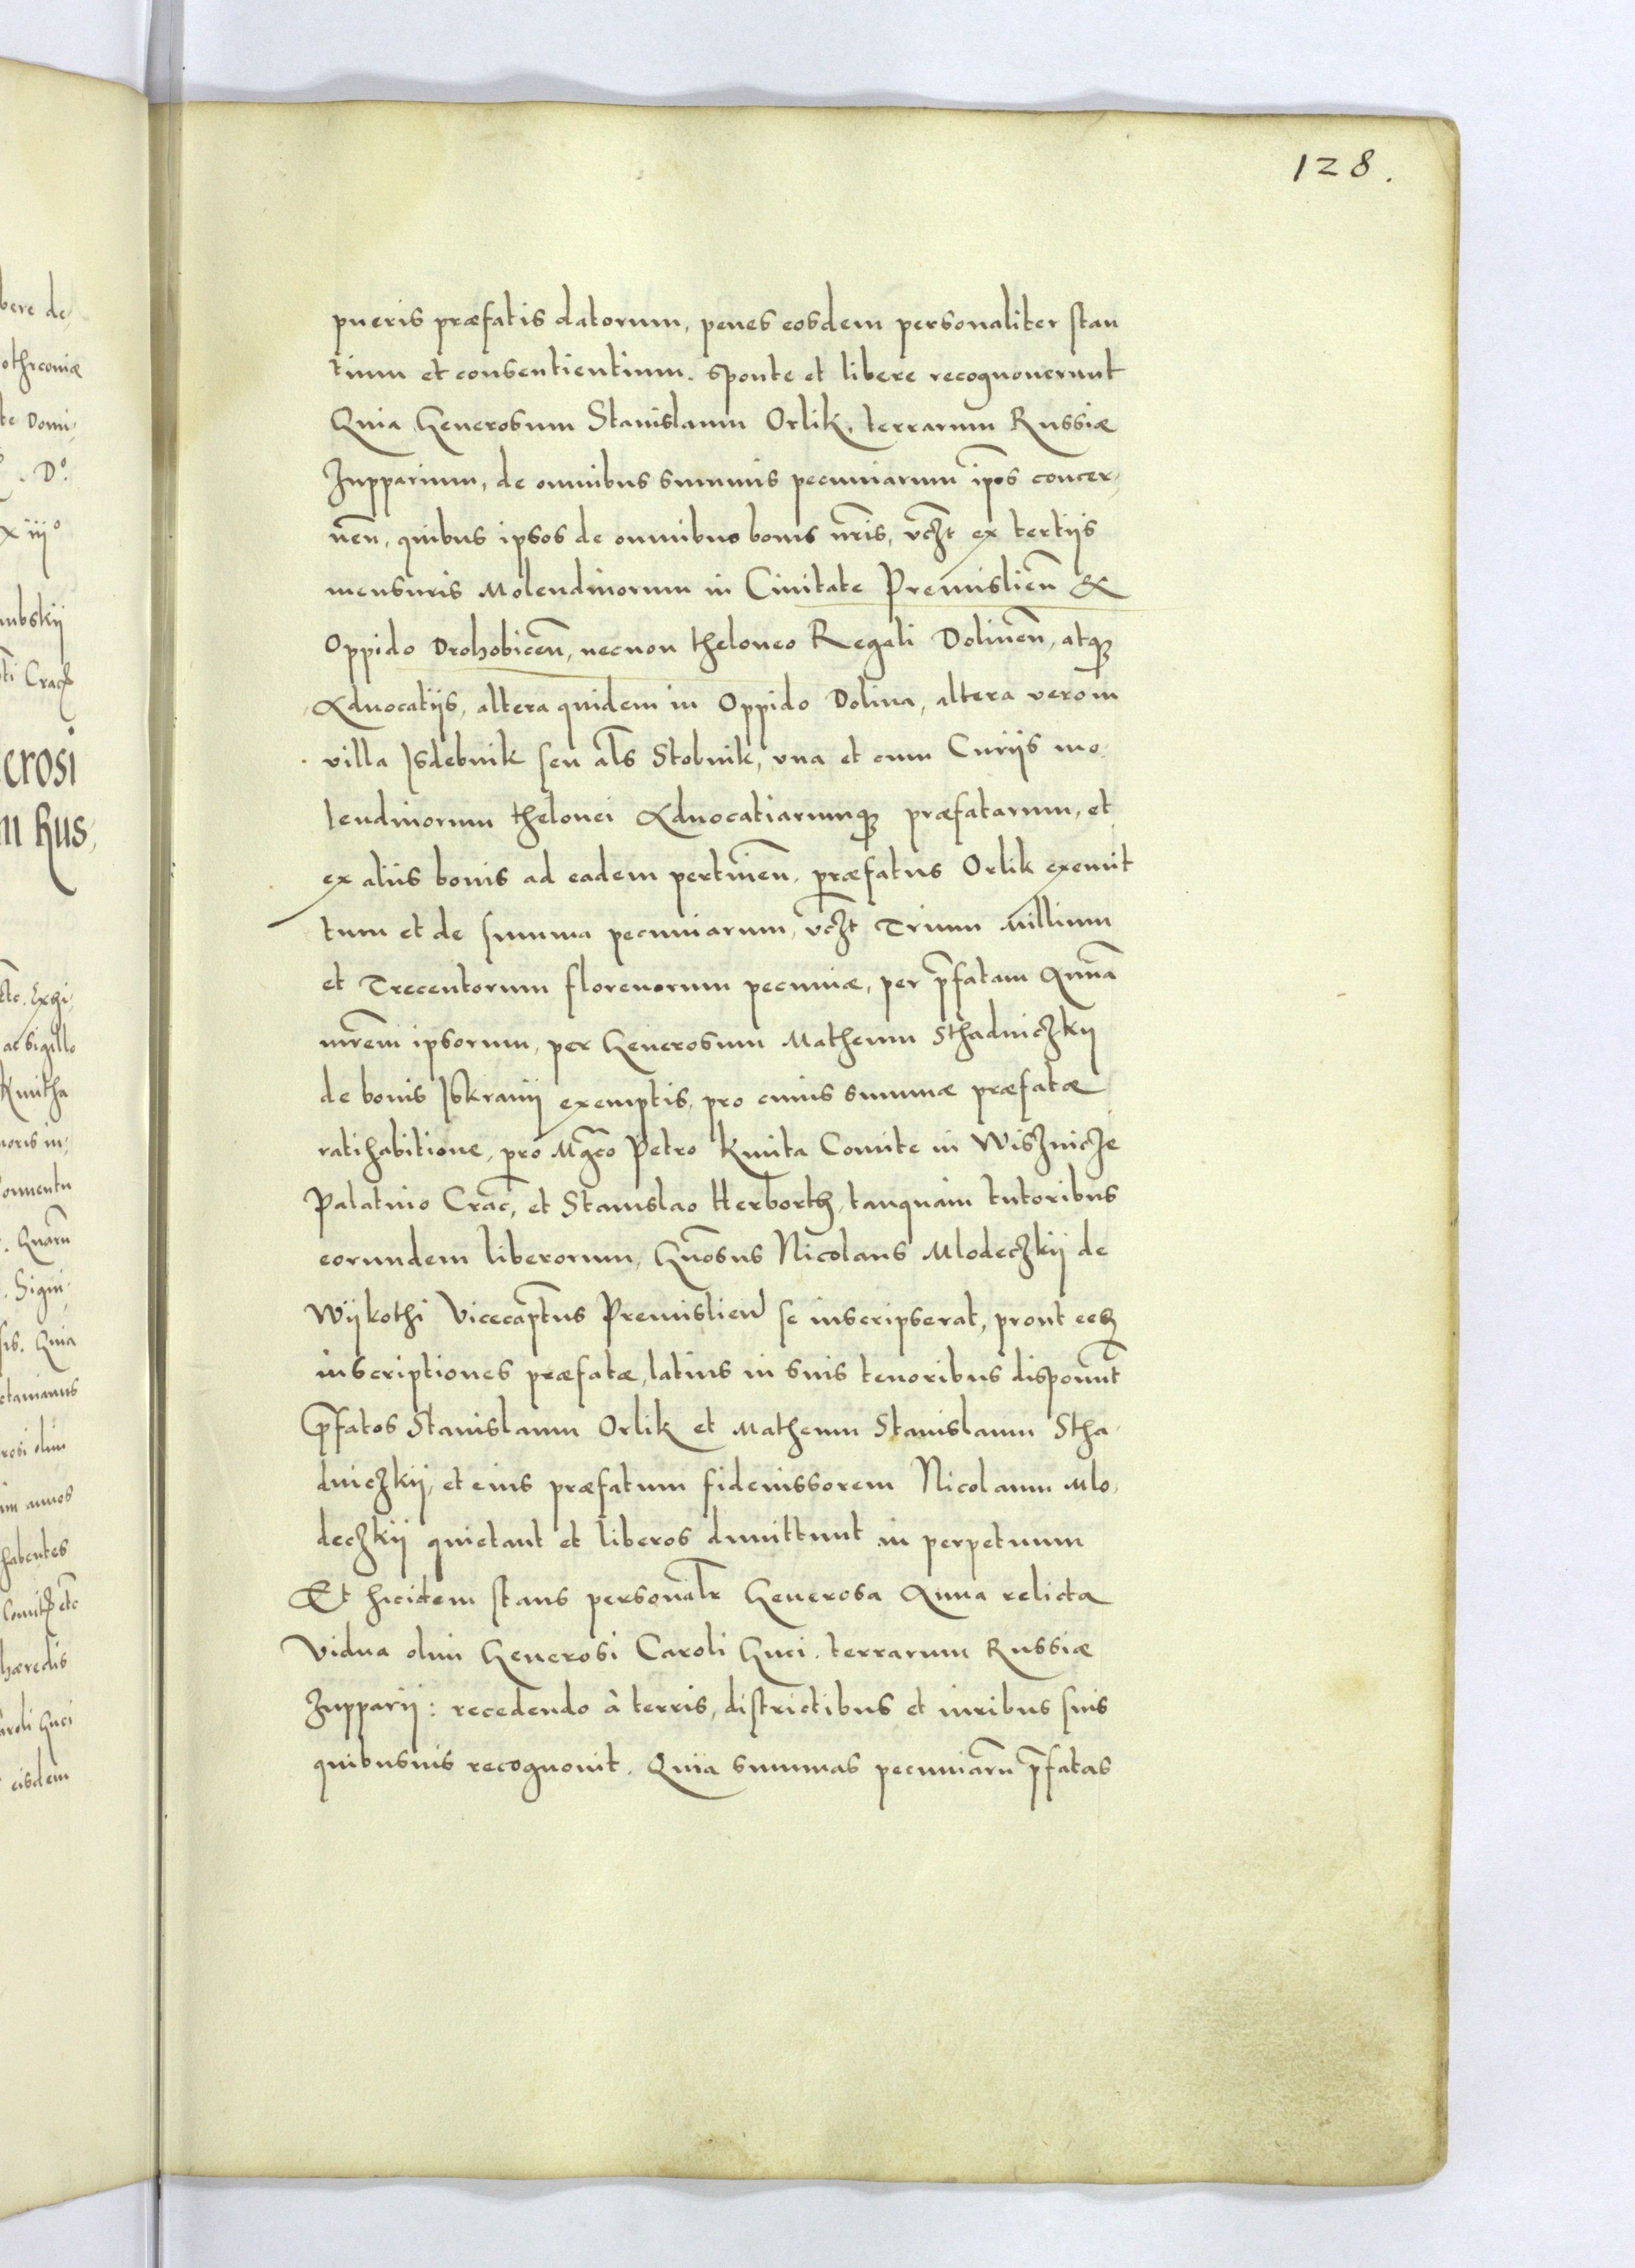 128.
pueris præfatis datorum, penes eosdem personaliter stan
tium et consentientium. Sponte et libere recognouerunt
Quia Generosum Stanislaum Orlik, terrarum Russiæ
Zupparium, de omnibus summis pecuniarum ip̄os concer,
neñ, quibus ipsos de omnibus bonis nr̄is, vcƷt ex tertijs
mensuris Molendinorum in Ciuitate Premislieñ &
Oppido Drohobiceñ, necnon theloneo Regali Dolineñ, atq3
Aduocatijs, altera quidem in Oppido Dolina, altera vero in
villa Isdebnik seu al̄s Stobnik, vna et cum Curijs mo
lendinorum thelonei Aduocatiarumq3 præfatarum, et
ex aliis bonis ad eadem pertineñ, præfatus Orlik exemit
tum et de summa pecuniarum, vcƷt Trium Millium
et Trecentorum florenorum pecuniæ, per p̄fatam Annā
mr̄em ipsorum, per Generosum Matheum Sthadniczkij
de bonis Iskranij exemptis, pro cuius summæ præfatæ
ratihabitione, pro Mg̃co Petro Kmita Comite in Wisznicze
Palatino Crac̃, et Stanislao Herborth, tanquam tutoribus
eorundem liberorum, Gñosus Nicolaus Mlodeczkij de
Wijkothi Vicecapt̃us Premislieñ se inscripserat, prout eeh
inscriptiones præfatæ, latius in suis tenoribus disponūt
P̄fatos Stanislaum Orlik et Matheum Stanislaum Stha
dniczkij, et eius præfatum fideiussorem Nicolaum Mlo,
deczkij quietant et liberos dimittunt in perpetuum
Et hicidem stans personal̄r Generosa Anna relicta
Vidua olim Generosi Caroli Guci. terrarum Russiæ
Zupparij: recedendo à terris, districtibus et iuribus suis
quibusuis recognouit. Quia summas pecuniarū p̄fatas